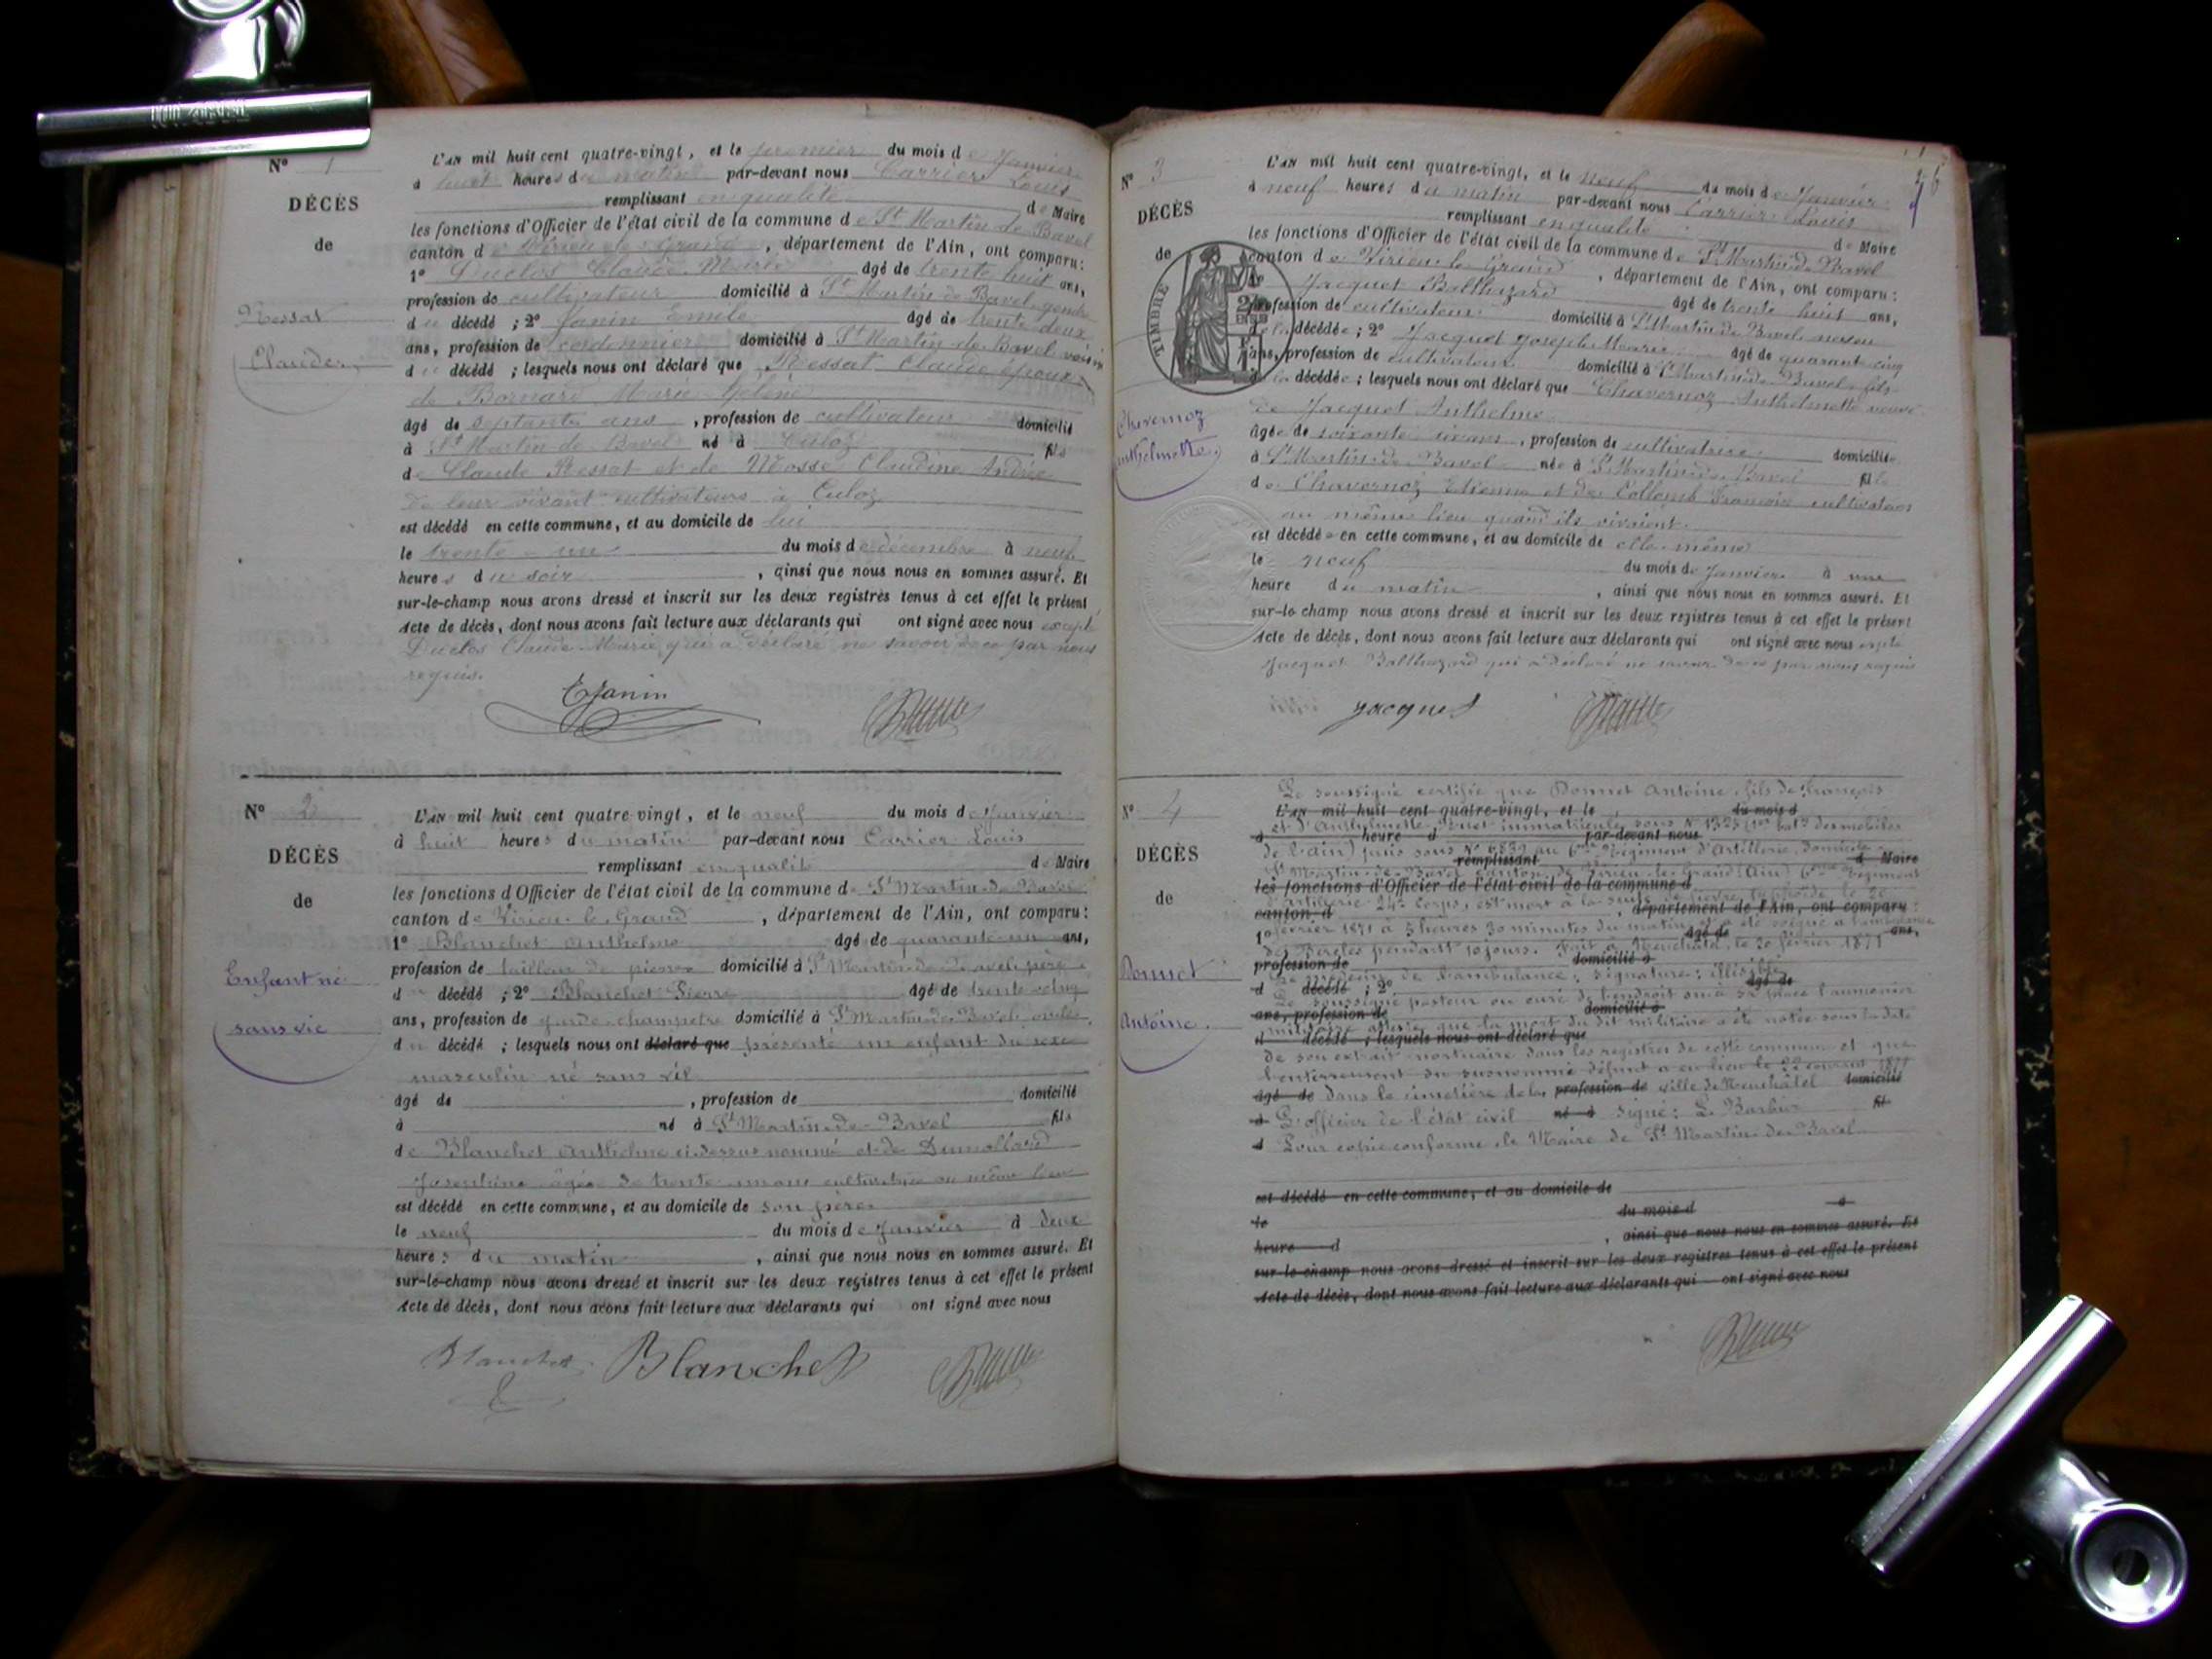 N° 1
DÉCÈS
de
Ressat
Claude
L'AN mil huit cent quatre-vingt, et le premier du mois de Janvier
à huit heures du matin par-devant nous Carrier Louis
remplissant en qualité de Maire
les fonctions d'Officier de l'état civil de la commune de St Martin de Bavel
canton de Virieu le Grand, département de l'Ain, ont comparu:
1° Duclos Claude Marie âgé de trente huit ans,
profession de cultivateur domicilié à St Martin de Bavel gendre
du décédé ; 2° Janin Emile âgé de trente deux
ans, profession de cordonnier domicilié à St Martin de Bavel voisin
du décédé ; lesquels nous ont déclaré que Ressat Claude époux
de Bornard Marie Hélène
âgé de septante ans, profession de cultivateur domicilié
à St Martin de Bavel né à Culoz fils
de Claude Ressat et de Mosse Claudine Andrée
de leur vivant cultivateurs à Culoz
est décédé en cette commune, et au domicile de lui
le trente-un du mois de décembre à neuf
heures du soir, ainsi que nous nous en sommes assuré. Et
sur-le-champ nous avons dressé et inscrit sur les deux registres tenus à cet effet le présent
Acte de décès, dont nous avons fait lecture aux déclarants qui ont signé avec nous excepté
Duclos Claude Marie qui a déclaré ne savoir de ce par nous
requis.
EJanin
N° 2
DÉCÈS
de
Enfant né
sans vie
L'AN mil huit cent quatre-vingt, et le neuf du mois de Janvier
à huit heures du matin par-devant nous Carrier Louis
remplissant en qualité de Maire
les fonctions d'Officier de l'état civil de la commune de St Martin de Bavel
canton de Virieu le Grand, département de l'Ain, ont comparu:
1° Blanchet Anthelme âgé de quarante-un ans,
profession de tailleur de pierres domicilié à St Martin de Bavel père
du décédé ; 2° Blanchet Pierre âgé de trente cinq
ans, profession de garde-champêtre domicilié à St Martin de Bavel oncle
du décédé ; lesquels nous ont déclaré que présenté un enfant du sexe
masculin né sans vie
âgé de , profession de domicilié
à né à St Martin-de-Bavel fils
de Blanchet Anthelme ci-dessus nommé et de Dumollard
Josephine âgée de trente-un ans cultivatrice au même lieu
est décédé en cette commune, et au domicile de son père
le neuf du mois de Janvier à deux
heures du matin, ainsi que nous nous en sommes assuré. Et
sur-le-champ nous avons dressé et inscrit sur les deux registres tenus à cet effet le présent
Acte de décès, dont nous avons fait lecture aux déclarants qui ont signé avec nous
Blanchet Blanchet
N° 3
DÉCÈS
de
TIMBRE
Chavernoz
Anthelmette
L'AN mil huit cent quatre-vingt, et le neuf du mois de Janvier
à neuf heures du matin par-devant nous Carrier Louis
remplissant en qualité de Maire
les fonctions d'Officier de l'état civil de la commune de St Martin de Bavel
canton de Virieu le Grand, département de l'Ain, ont comparu:
Jacquet Balthazard âgé de trente huit ans,
profession de cultivateur domicilié à St Martin de Bavel neveu
de la décédée ; 2° Jacquet Joseph Marie âgé de quarante cinq
ans, profession de cultivateur domicilié à St Martin de Bavel fils
de la décédée ; lesquels nous ont déclaré que Chavernoz Anthelmette veuve
de Jacquet Anthelme
âgée de soixante ans, profession de cultivatrice domiciliée
à St Martin de Bavel née à St Martin de Bavel fille
de Chavernoz Etienne et de Collomb Françoise cultivateurs
au même lieu quand ils vivaient.
est décédée en cette commune, et au domicile de elle-même
le neuf du mois de Janvier à une
heure du matin, ainsi que nous nous en sommes assuré. Et
sur-le-champ nous avons dressé et inscrit sur les deux registres tenus à cet effet le présent
Acte de décès, dont nous avons fait lecture aux déclarants qui ont signé avec nous excepté
Jacquet Balthazard qui a déclaré ne savoir de ce par nous requis
Jacquet
N° 4
DÉCÈS
de
Donnet
Antoine
Le soussigné certifie que Donnet Antoine, fils de François
L'AN mil huit cent quatre-vingt, et le du mois d
et d'Anthelmette immatriculé sous N° 1325 (1er bat. des mobiles
à heure d par-devant nous
de l'Ain) puis sous N° au Régiment d'Artillerie, domicilié
remplissant d Maire
St Martin de Bavel canton de Virieu le Grand (Ain) Régiment
les fonctions d'Officier de l'état civil de la commune d
d'artillerie 24e Corps, est mort à la suite de fièvre typhoïde le 20
canton d , département de l'Ain, ont comparu:
février 1871 à 5 heures 30 minutes du matin a été soigné à l'ambulance
1° âgé de ans,
des Bercles pendant 10 jours. Fait à Neuchâtel, le 20 février 1871
profession de domicilié à
Le médecin de l'ambulance: signature: illisible
d décédé ; 2° âgé de
Le soussigné pasteur ou curé de l'endroit l'aumônier
ans, profession de domicilié à
militaire atteste que la mort du dit militaire a été notée sous la date
d décédé ; lesquels nous ont déclaré que
de son extrait mortuaire dans les registres de cette commune et que
l'enterrement du susnommé défunt a eu lieu le 22 courant 1871
âgé de dans le cimetière de la profession de ville de Neuchâtel domicilié
à L'officier de l'état civil né à signé: L. Barbier fil
d Pour copie conforme, le Maire de St Martin de Bavel
est décédé en cette commune, et au domicile de
le du mois d à
heure d , ainsi que nous nous en sommes assuré. Et
sur-le-champ nous avons dressé et inscrit sur les deux registres tenus à cet effet le présent
Acte de décès, dont nous avons fait lecture aux déclarants qui ont signé avec nous